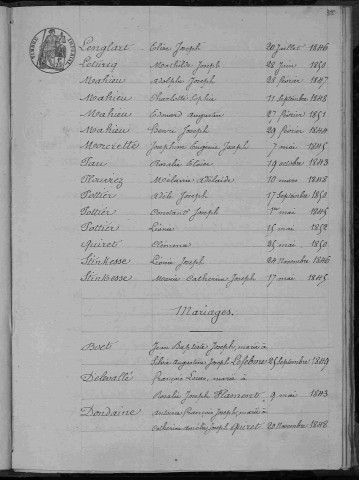 Lenglart Elise Joseph 20 Juillet 1846
Leclercq Mathilde Joseph 28 Juin 1850
Mahieu Adolphe Joseph 28 février 1847
Mahieu Charlotte Sophie 11 septembre 1848
Mahieu Edouard Augustin 27 février 1851
Mahieu Henri Joseph 29 février 1844
Morcrette Joséphine Eugénie Joseph 7 mai 1845
Pau Rosalie Elvire 19 octobre 1843
Fleurez Mélanie Adélaïde 10 mars 1848
Pottier Adèle Joseph 17 septembre 1850
Pottier Constant Joseph 1er mai 1845
Pottier Léonie 15 mai 1852
Quiret Clémence 25 mai 1850
Stinkesse Léonie Joseph 24 novembre 1846
Stinkesse Marie Catherine Joseph 17 mai 1845
Mariages.
Buet Jean Baptiste Joseph, marié à
Augustine Joseph Lefebvre 25 septembre 1849
Delevallé François Louis, marié à
Rosalie Joseph Flament 9 mai 1843
Dondaine Antoine François Joseph, marié à
Catherine Aurélie Joseph Quiret 20 novembre 1848